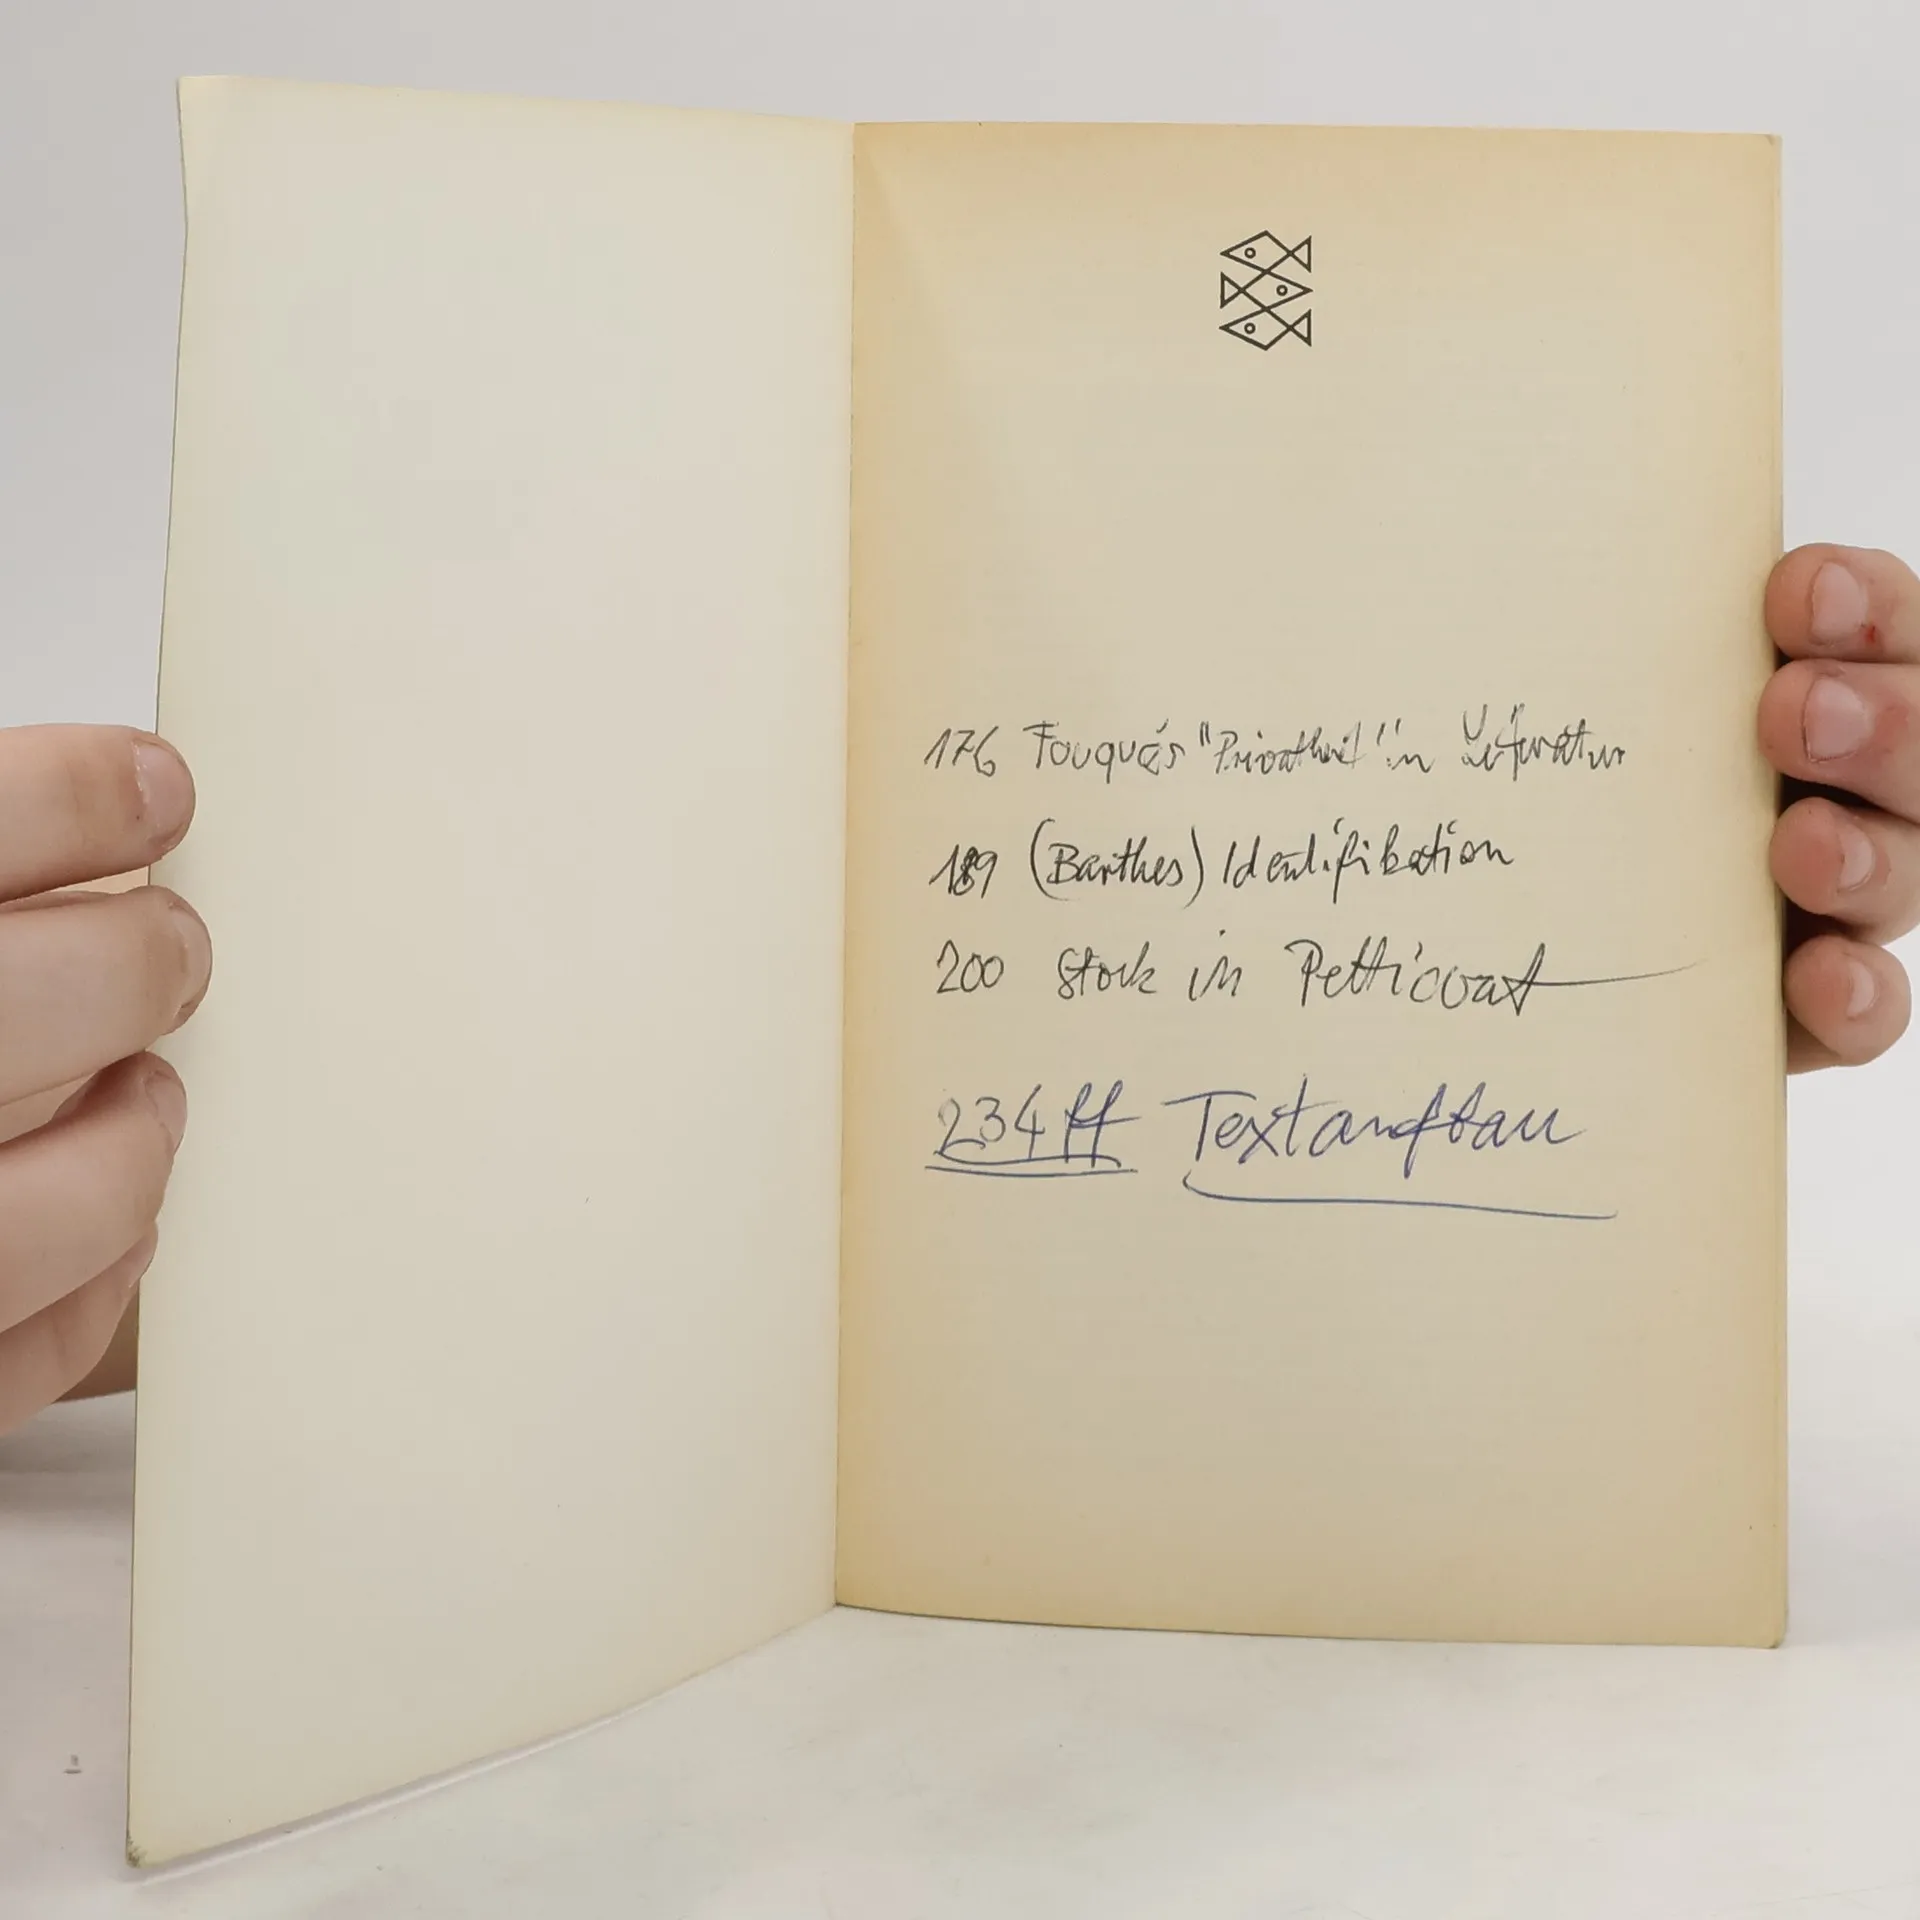 176 Fouqués "Privatheit" in Literatur
189 (Barthes) Identifikation
200 Stock in Petticoat
234 ff Textaufbau